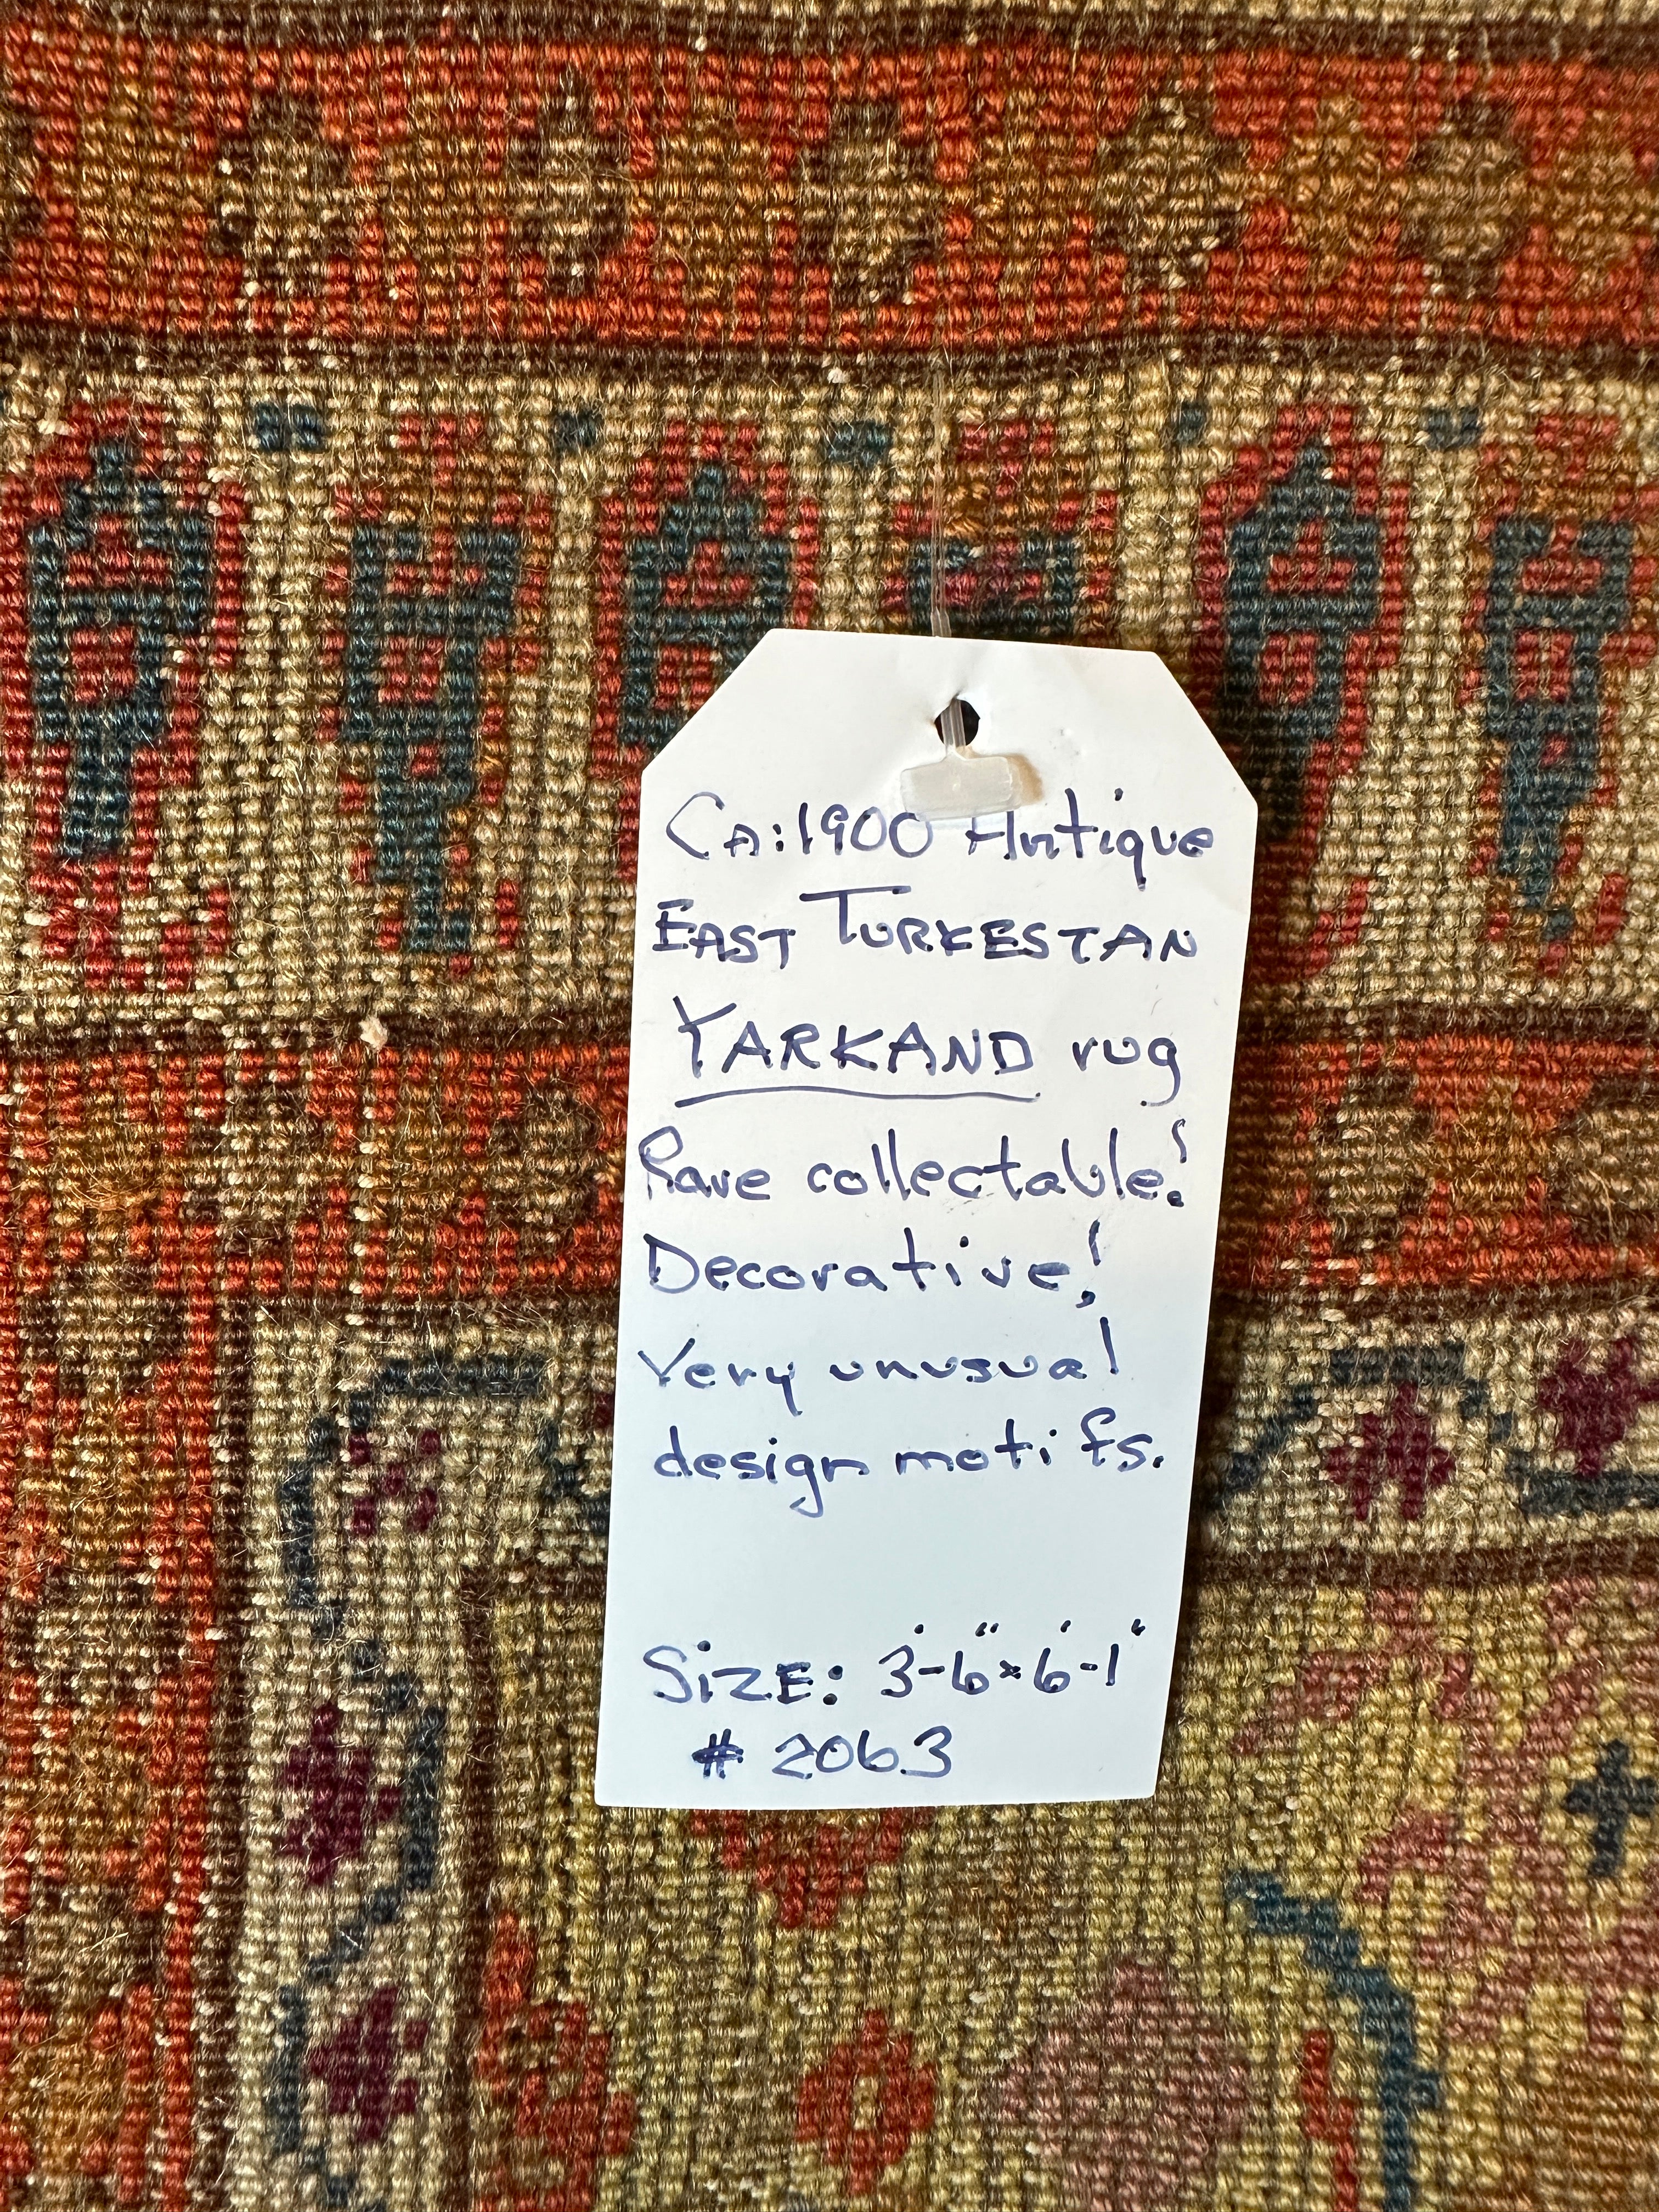 CA:1900 Antique
EAST TURKESTAN
YARKAND rug
Rare collectable!
Decorative!
Very unusual
design motifs.
SIZE: 3'-6"x6'-1"
# 2063